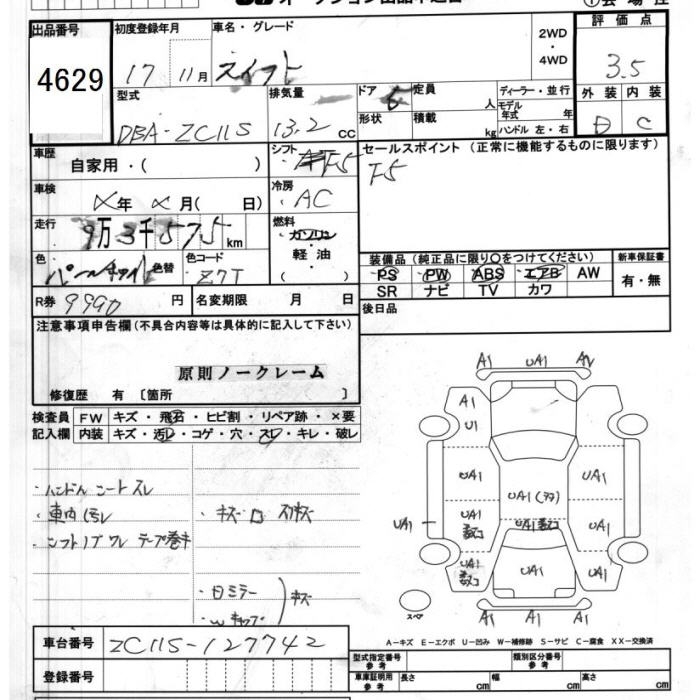 出品番号 初度登録年月 車名・グレード 2WD・4WD 評価点
4629 17 11月 スイフト 3.5
型式 排気量 ドア 5 定員 人 ディーラー・並行 外装 内装
DBA-ZC11S 13.2 cc 形状 積載 kg モデル年式 年 ハンドル 左・右 D C
車歴 自家用・( ) シフト F5 セールスポイント(正常に機能するものに限ります)
F5
車検 年 月( 日) 冷房 AC
走行 9万3千575km 燃料 ガソリン・軽油・( )
装備品(純正品に限り○をつけてください) 新車保証書
色 パールホワイト 色替 色コード Z7T
PS PW ABS エアB AW 有・無
SR ナビ TV カワ
R券 9990円 名変期限 月 日 後日品
注意事項申告欄(不具合内容等は具体的に記入して下さい)
原則ノークレーム
修復歴 有 〔箇所 〕
検査員 FW キズ・飛石・ヒビ割・リペア跡・×要
記入欄 内装 キズ・汚レ・コゲ・穴・スレ・キレ・破レ
・ハンドル シートスレ
・車内汚レ ・キズ ロ スリキズ
・シフトノブ ワレ テープ巻キ
・ミラー キズ
A1 UA1 A1
A1
U1
UA1 UA1
UA1(タタ)
UA1 UA1 UA1 UA1
UA1 UA1 UA1
スペア
A1 UA1 A1
A-キズ E-エクボ U-凹み W-補修跡 S-サビ C-腐食 XX-交換済
車台番号 ZC11S-127742
型式指定番号 参考 類別区分番号 参考
登録番号
車庫証明用 参考 長さ cm 幅 cm 高さ cm